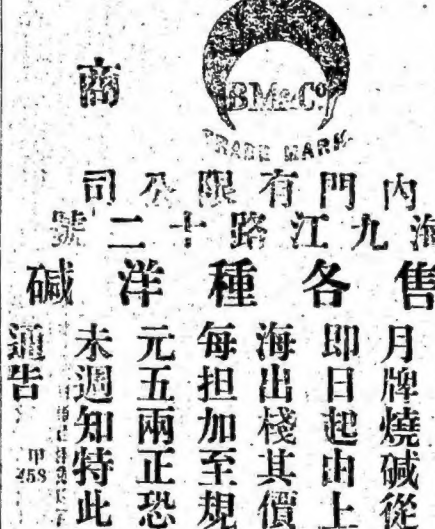 商
BM&Co.
TRADE MARK
內門有限公司
海九江路十二號
售各種洋碱
月牌燒碱從
即日起由上
海出棧其價
每担加至規
元五兩正恐
未週知特此
通告
甲
458